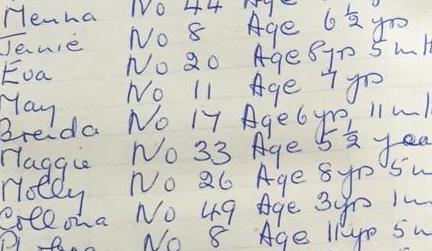 Menna No 44 Age
Jenie No 8 Age 6 ½ yrs
Eva No 20 Age 8 yrs 5 mth
May No 11 Age 7 yrs
Brenda No 17 Age 6 yrs 11 mth
Maggie No 33 Age 5 ½ yea
Molly No 26 Age 8 yrs 5 m
No 49 Age 3 yrs 1 m
No 8 Age 11 yrs 5 m